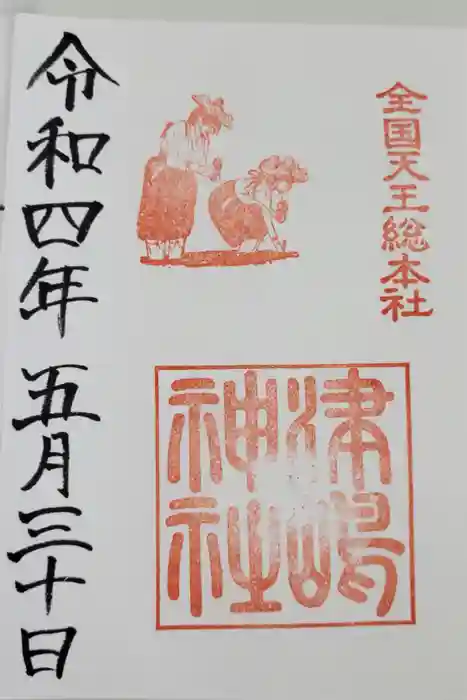 全国天王総本社
津嶋神社
令和四年五月三十日